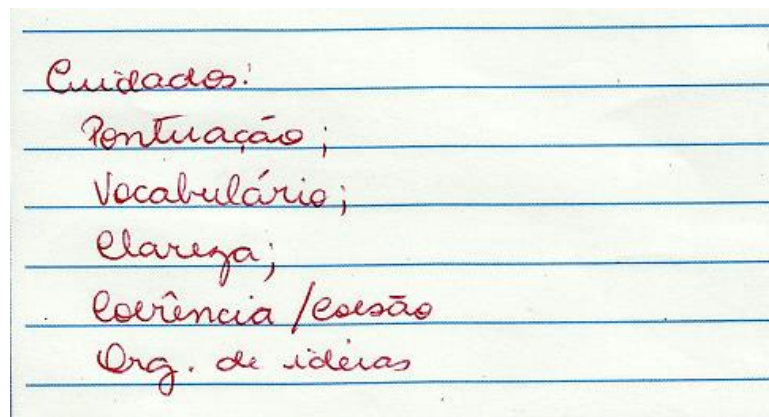 Cuidados:
Pontuação;
Vocabulário;
Clareza;
Coerência / Coesão
Org. de idéias